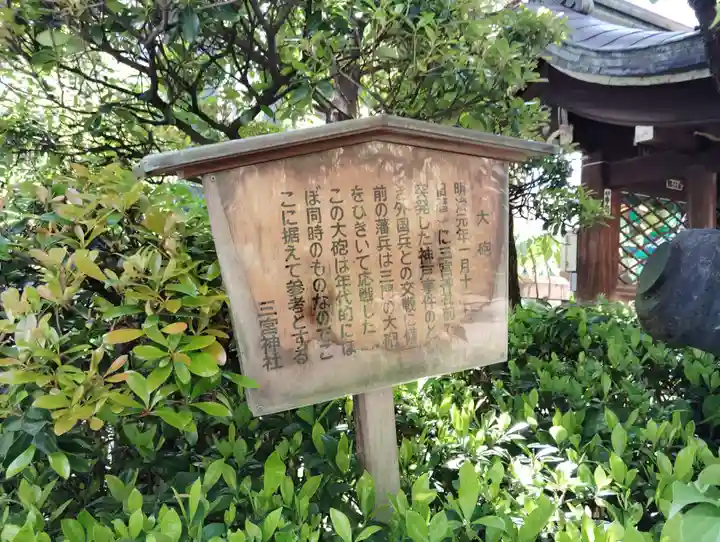 大砲
明治元年一月十
旧暦 に三宮神社前で
突発した神戸事件のと
き外国兵との交戦に備
前の藩兵は三門の大砲
をひきいて応戦した
この大砲は年代的にほ
ぼ同時のものなのでこ
こに据えて参考とする
三宮神社